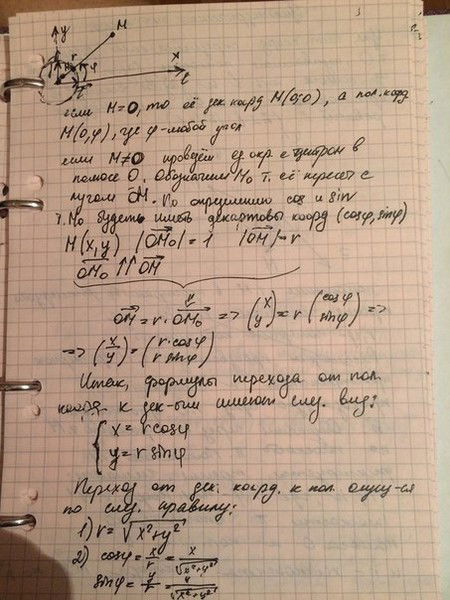 y
M
x
если M=O, то её дек. коорд M(0;0), а пол. коорд
M(0,φ), где φ-любой угол
если M≠O проведём ед. окр. с центром в
полюсе O. Обозначим M₀ т. её пересеч с
лучом OM. По определению cos и sin
т. M₀ будет иметь декартовы коорд (cosφ, sinφ)
M(x,y) |OM₀| = 1 |OM| = r
OM₀ ↑↑ OM
OM = r · OM₀ => (x y) = r (cosφ sinφ) =>
=> (x y) = (r·cosφ r sinφ)
Итак, формулы перехода от пол.
коорд. к дек-ым имеют след. вид:
{ x = r cosφ
y = r sinφ
Переход от дек. коорд. к пол. осущ-ся
по след. правилу:
1) r = √x²+y²
2) cosφ = x/r = x/√x²+y²
sinφ = y/r = y/√x²+y²